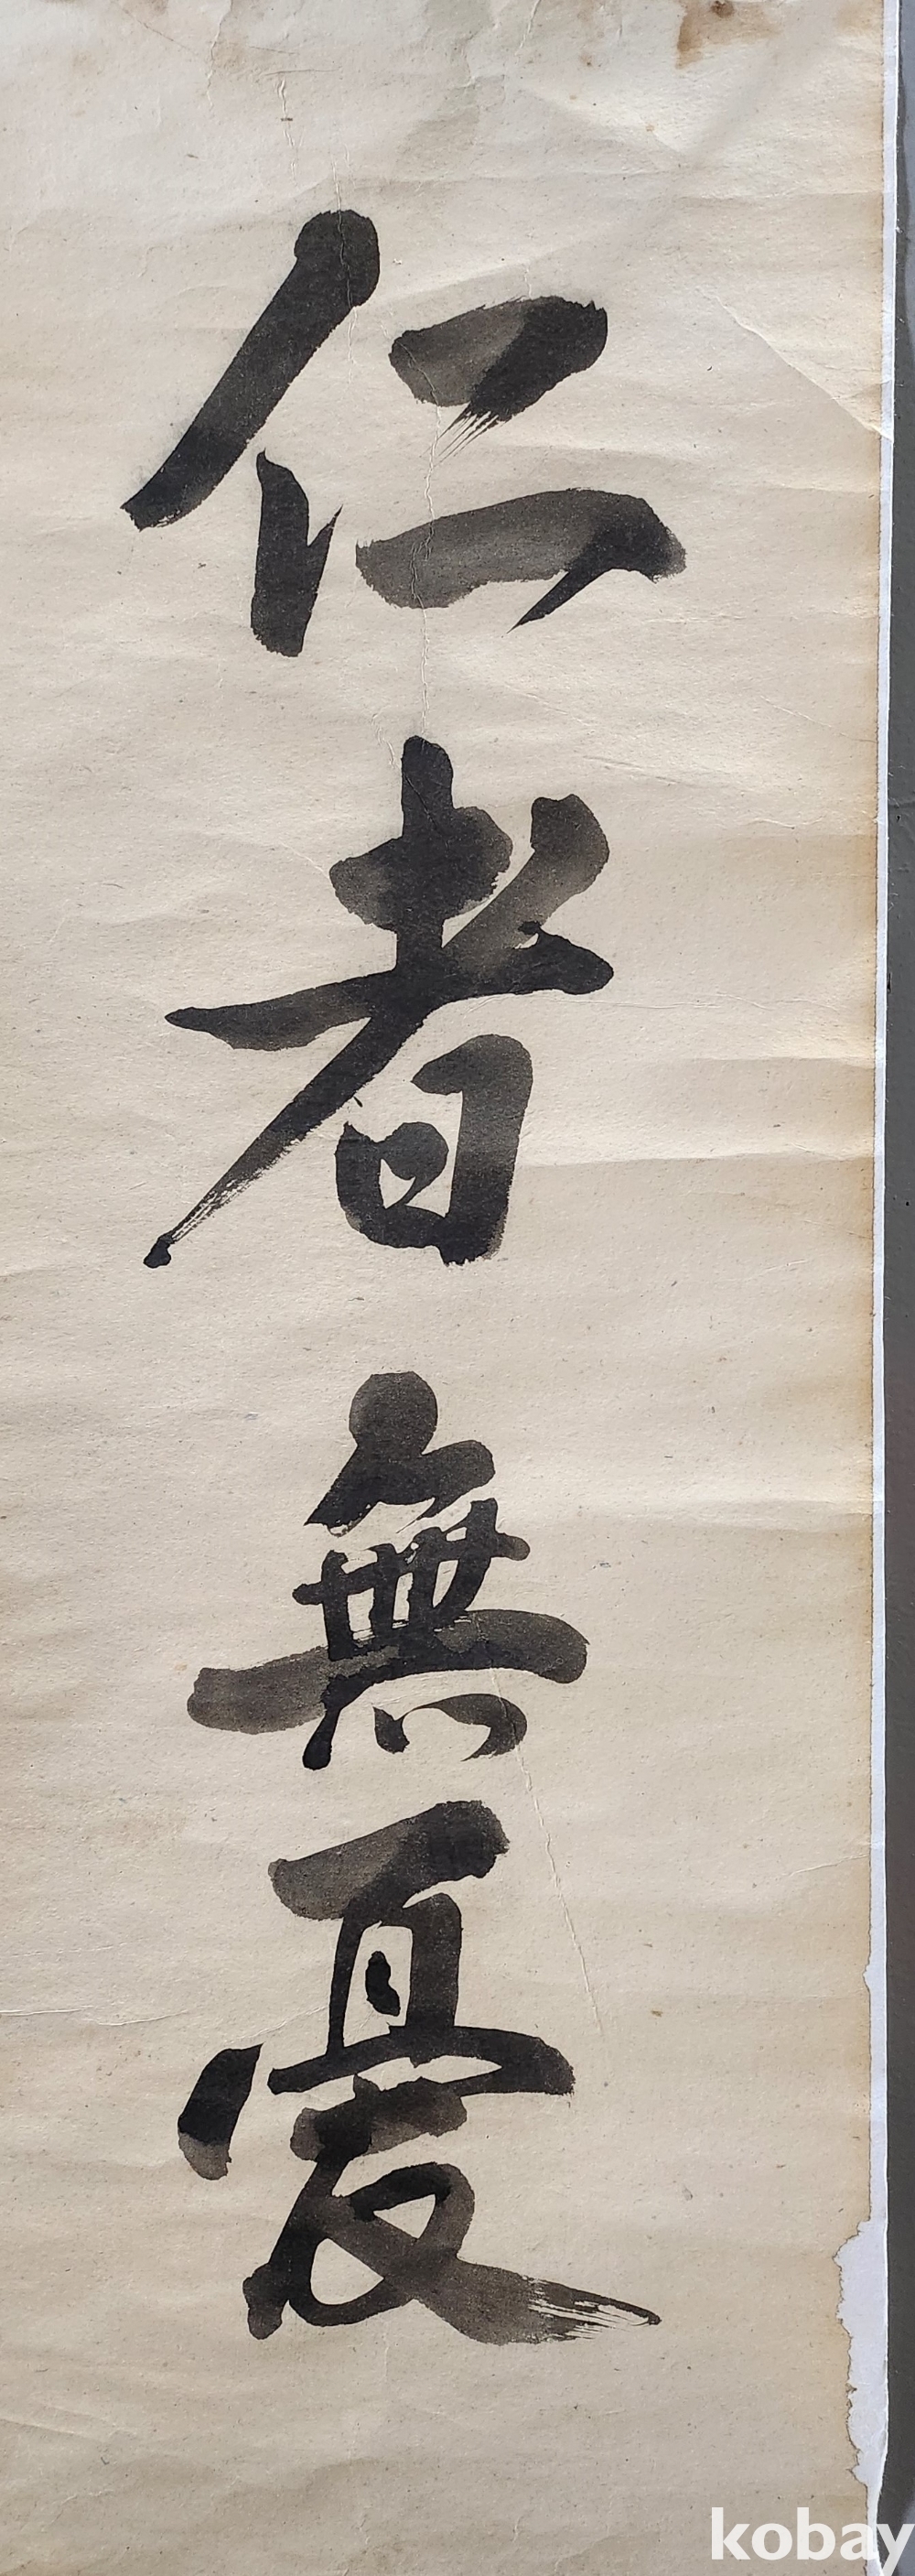 仁者無憂
kobay